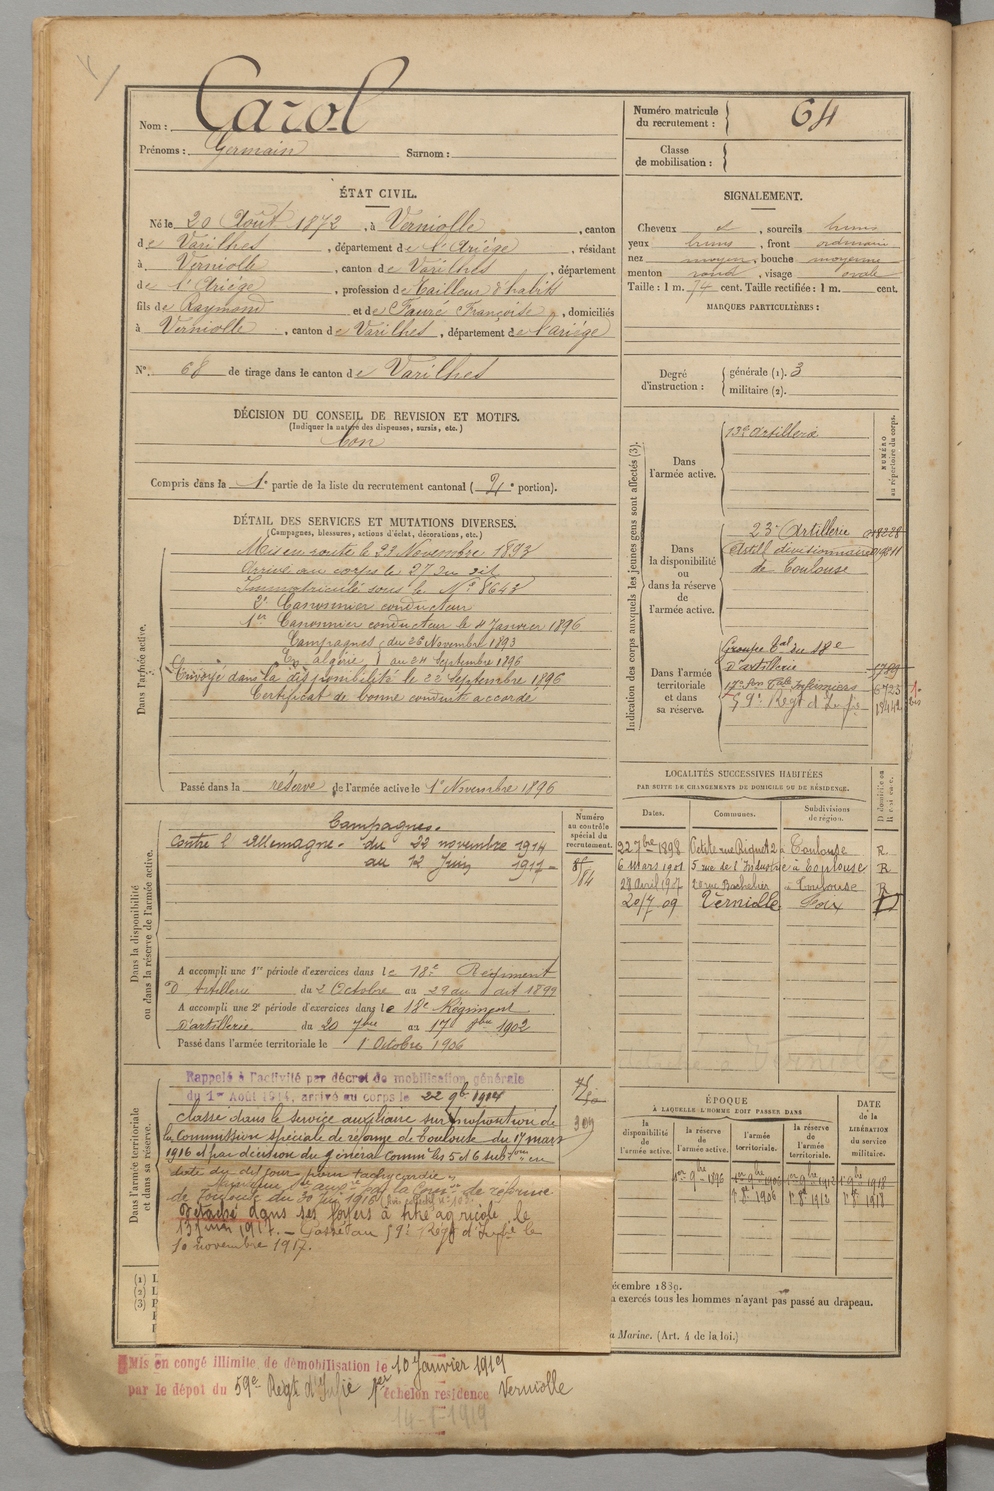 Nom : Carol
Prénoms : Germain Surnom :
Numéro matricule du recrutement : 64
Classe de mobilisation :
ÉTAT CIVIL.
Né le 20 Août 1872, à Verniolle, canton
de Varilhes, département de l'Ariège, résidant
à Verniolle, canton de Varilhes, département
de l'Ariège, profession de tailleur d'habits
fils de Raymond et de Faure Françoise, domiciliés
à Verniolle, canton de Varilhes, département de l'ariège
N° 68 de tirage dans le canton de Varilhes
SIGNALEMENT.
Cheveux et, sourcils bruns
yeux bruns, front ordinaire
nez moyen, bouche moyenne
menton rond, visage ovale
Taille : 1 m. 74 cent. Taille rectifiée : 1 m. cent.
MARQUES PARTICULIÈRES :
Degré d'instruction : générale (1). 3
militaire (2).
DÉCISION DU CONSEIL DE REVISION ET MOTIFS.
(Indiquer la nature des dispenses, sursis, etc.)
bon
Compris dans la 1e partie de la liste du recrutement cantonal ( 2e portion).
DÉTAIL DES SERVICES ET MUTATIONS DIVERSES.
(Campagnes, blessures, actions d'éclat, décorations, etc.)
Dans l'armée active.
Mis en route le 23 Novembre 1893
Arrivé au corps le 27 du dit
Immatriculé sous le N° 8648
2e Canonnier conducteur
1er Canonnier conducteur le 4 Janvier 1896
Campagnes du 26 Novembre 1893
En algérie au 24 Septembre 1896
Envoyé dans la disponibilité le 22 Septembre 1896
Certificat de bonne conduite accordé
Passé dans la réserve de l'armée active le 1er Novembre 1896
Indication des corps auxquels les jeunes gens sont affectés (3).
NUMÉRO au répertoire du corps.
Dans l'armée active.
13e Artillerie
Dans la disponibilité ou dans la réserve de l'armée active.
23e Artillerie
Artill divisionnaire
de Toulouse
Dans l'armée territoriale et dans sa réserve.
Groupe tal du 18e
D'artillerie 1789
17e Son Tale Infirmiers 6725
59e Regt d'Infie 18442
LOCALITÉS SUCCESSIVES HABITÉES
PAR SUITE DE CHANGEMENTS DE DOMICILE OU DE RÉSIDENCE.
Dates. Communes. Subdivisions de région. Domicile ou Résidence.
22 7bre 1898 rue Riquet 2 à Toulouse R
6 Mars 1901 5 rue de l'Industrie à Toulouse R
28 Avril 1907 22 rue Bachelier à Toulouse R
20/7 09 Verniolle Foix D
Dans la disponibilité ou dans la réserve de l'armée active.
Campagnes.
Contre l'Allemagne. du 22 novembre 1914
au 12 Juin 1917
Numéro au contrôle spécial du recrutement.
A accompli une 1re période d'exercices dans le 18e Régiment
D'Artillerie du 2 Octobre au 29 du dit 1899
A accompli une 2e période d'exercices dans le 18e Régiment
D'artillerie du 20 7bre au 17 8bre 1902
Passé dans l'armée territoriale le 1er Octobre 1906
Dans l'armée territoriale et dans sa réserve.
Rappelé à l'activité par décret de mobilisation générale
du 1er Août 1914, arrivé au corps le 22 9b 1914
309
classé dans le service auxiliaire sur proposition de
la Commission spéciale de réforme de Toulouse du 17 mars
1916 et par décision du général Commt les 5 et 6 subons en
date du dit jour pour tachycardie.
de Toulouse du 30 Juin 1916
Détaché dans ses foyers à titre agricole le
13 juin 1917. — Passé au 59e Régt d'Infie le
10 novembre 1917.
ÉPOQUE
À LAQUELLE L'HOMME DOIT PASSER DANS
DATE de la LIBÉRATION du service militaire.
la disponibilité de l'armée active.
la réserve de l'armée active.
l'armée territoriale.
la réserve de l'armée territoriale.
1er 9bre 1896 1er 9bre 1906 1er 9bre 1912 1er 9bre 1918
1er 8bre 1906 1er 8bre 1912 1er 8bre 1918
(1)
(2)
(3)
écembre 1889.
a exercés tous les hommes n'ayant pas passé au drapeau.
a Marine. (Art. 4 de la loi.)
Mis en congé illimité de démobilisation le 10 Janvier 1919
par le dépot du 59e Régt d'Infie 1er échelon residence Verniolle
14-1-1919